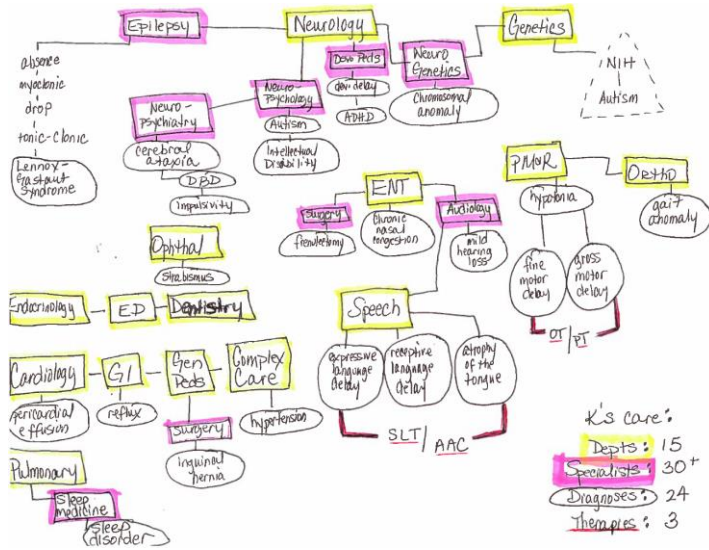 Epilepsy
absence
myoclonic
drop
tonic-clonic
Lennox-
Gastaut
Syndrome
Neurology
Neuro-
psychiatry
cerebral
ataxia
DBD
impulsivity
Neuro-
psychology
Autism
Intellectual
Disability
Devo Peds
dev. delay
ADHD
Neuro
Genetics
Chromosomal
anomaly
Genetics
NIH
Autism
ENT
Surgery
frenulectomy
Chronic
nasal
congestion
Audiology
mild
hearing
loss
PM&R
hypotonia
fine
motor
delay
gross
motor
delay
OT/PT
Ortho
gait
anomaly
Ophthal
strabismus
Endocrinology
E.D
Dentistry
Speech
expressive
language
delay
receptive
language
delay
atrophy
of the
tongue
SLT/AAC
Cardiology
pericardial
effusion
GI
reflux
Gen
Peds
Surgery
inguinal
hernia
Complex
Care
hypertension
Pulmonary
Sleep
medicine
sleep
disorder
K's care:
Depts: 15
Specialists: 30+
Diagnoses: 24
Therapies: 3